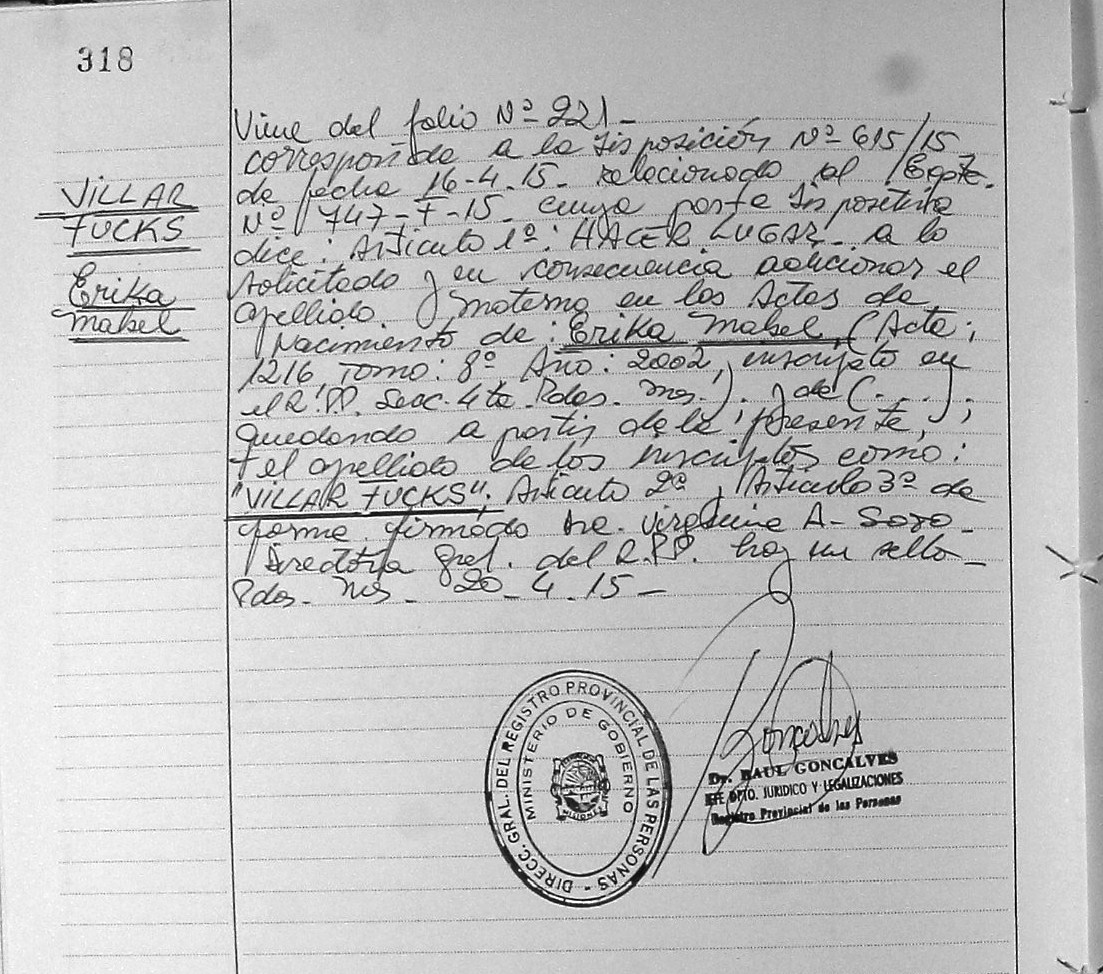 318
VILLAR
FUCKS
Erika
Mabel
Viene del folio Nº 221-
correspondo a la Disposición Nº 615/15
de fecha 16-4-15- relacionado al Expte.
Nº 747-F-15- cuya parte Dispositiva
dice: Artículo 1º: HACER LUGAR a lo
solicitado y en consecuencia adicionar el
apellido materno en las Actas de
Nacimiento de: Erika Mabel, (Acta:
1216 Tomo: 8º Año: 2002, inscripto en
el R.P.P. Secc. 4ta. Pdas. Mns.). y de (...);
quedando a partir de la presente,
el apellido de los inscriptos como:
"VILLAR FUCKS". Artículo 2º, Artículo 3º de
forma firmado Dra. Virginia A-
Directora Gral. del R.P.P. hay un sello-
Pdas- Mns- 20-4-15-
DIRECC. GRAL. DEL REGISTRO PROVINCIAL DE LAS PERSONAS -
MINISTERIO DE GOBIERNO
MISIONES
Goncalves
Dr. RAUL GONCALVES
JEFE DPTO. JURIDICO Y LEGALIZACIONES
Registro Provincial de las Personas